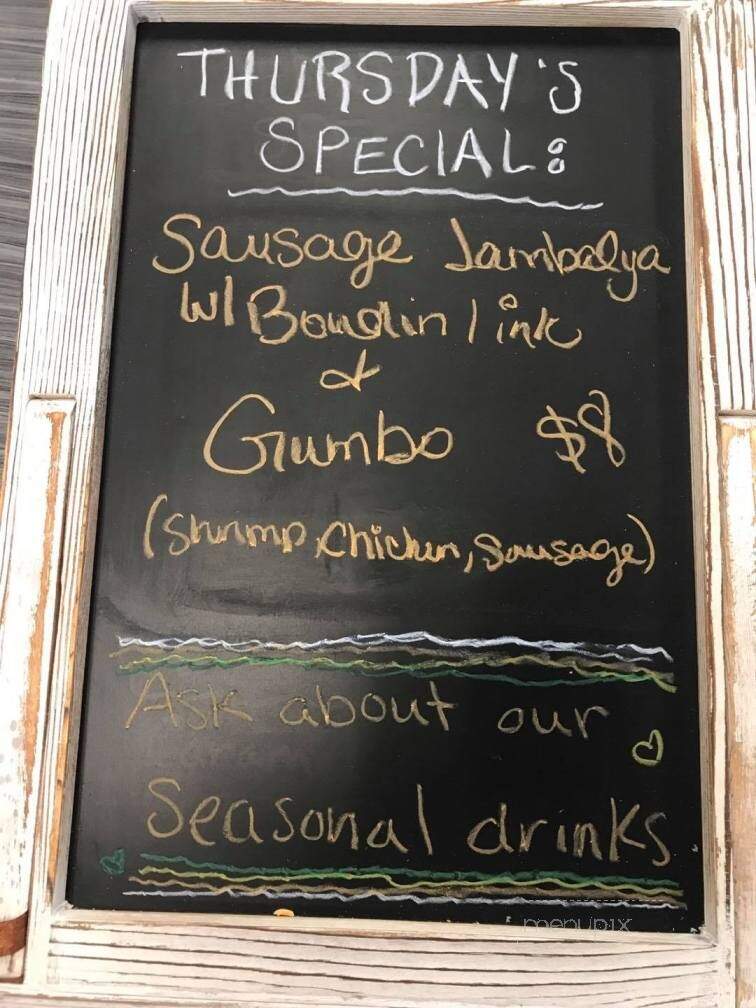 THURSDAY'S
SPECIAL:
Sausage Jambalya
W/ Boudin link
&
Gumbo $8
(Shrimp, Chicken, Sausage)
Ask about our
Seasonal drinks
menupix